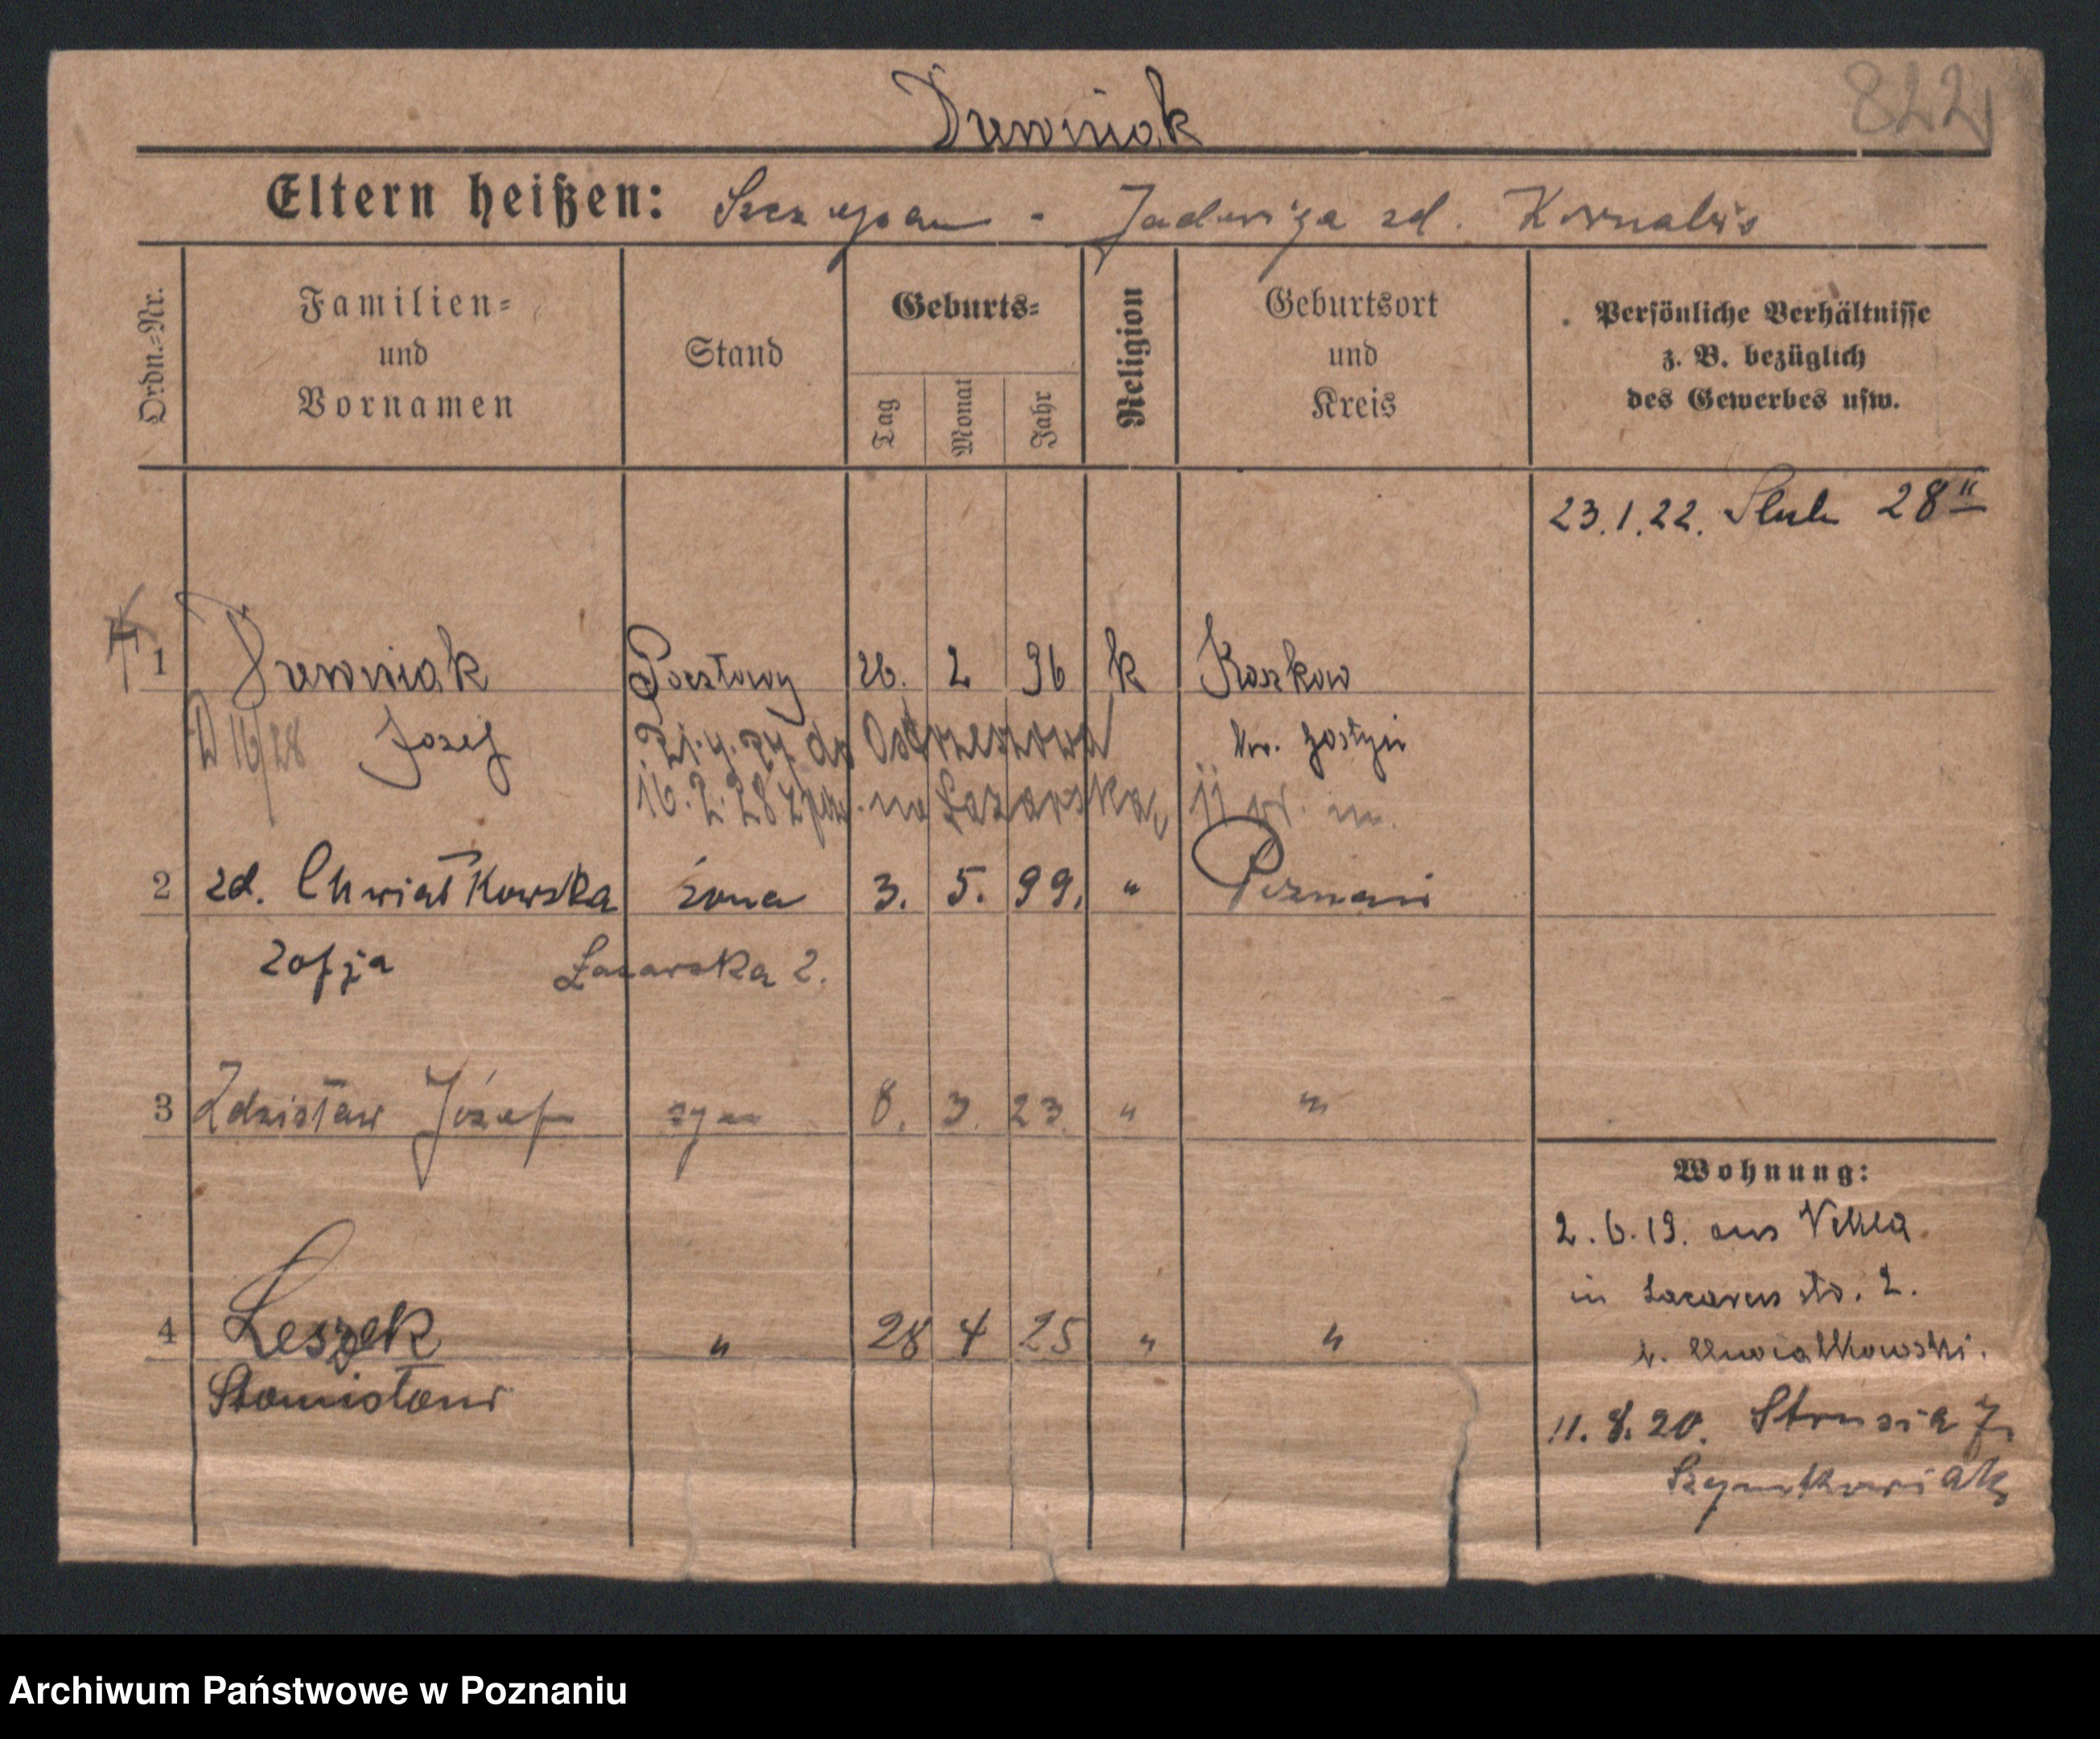 Drewniak
822
Eltern heißen: Szczepan - Jadwiga zd. Kornalris
Ordn.-Nr.
Familien-
und
Vornamen
Stand
Geburts-
Tag
Monat
Jahr
Religion
Geburtsort
und
Kreis
Persönliche Verhältnisse
z. B. bezüglich
des Gewerbes usw.
23.1.22. Slub 28
1 Drewniak Pocztowy 26. 2 96 k Koszkow
D 16/28 Józef do Ostrzeszowa kr. Gostyń
16.2.28 na Łazarską 11
2 zd. Chwiałkowska żona 3. 5. 99. " Poznań
Zofja Łazarska 2.
3 Zdzisław Józef syn 8. 3. 23. " "
4 Leszek " 28 4 25 " "
Stanisław
Wohnung:
2.6.19. aus
in Lazarusstr. 2.
b. Chwiałkowski.
11.8.20. Strusia 7
Szymkowiak
Archiwum Państwowe w Poznaniu